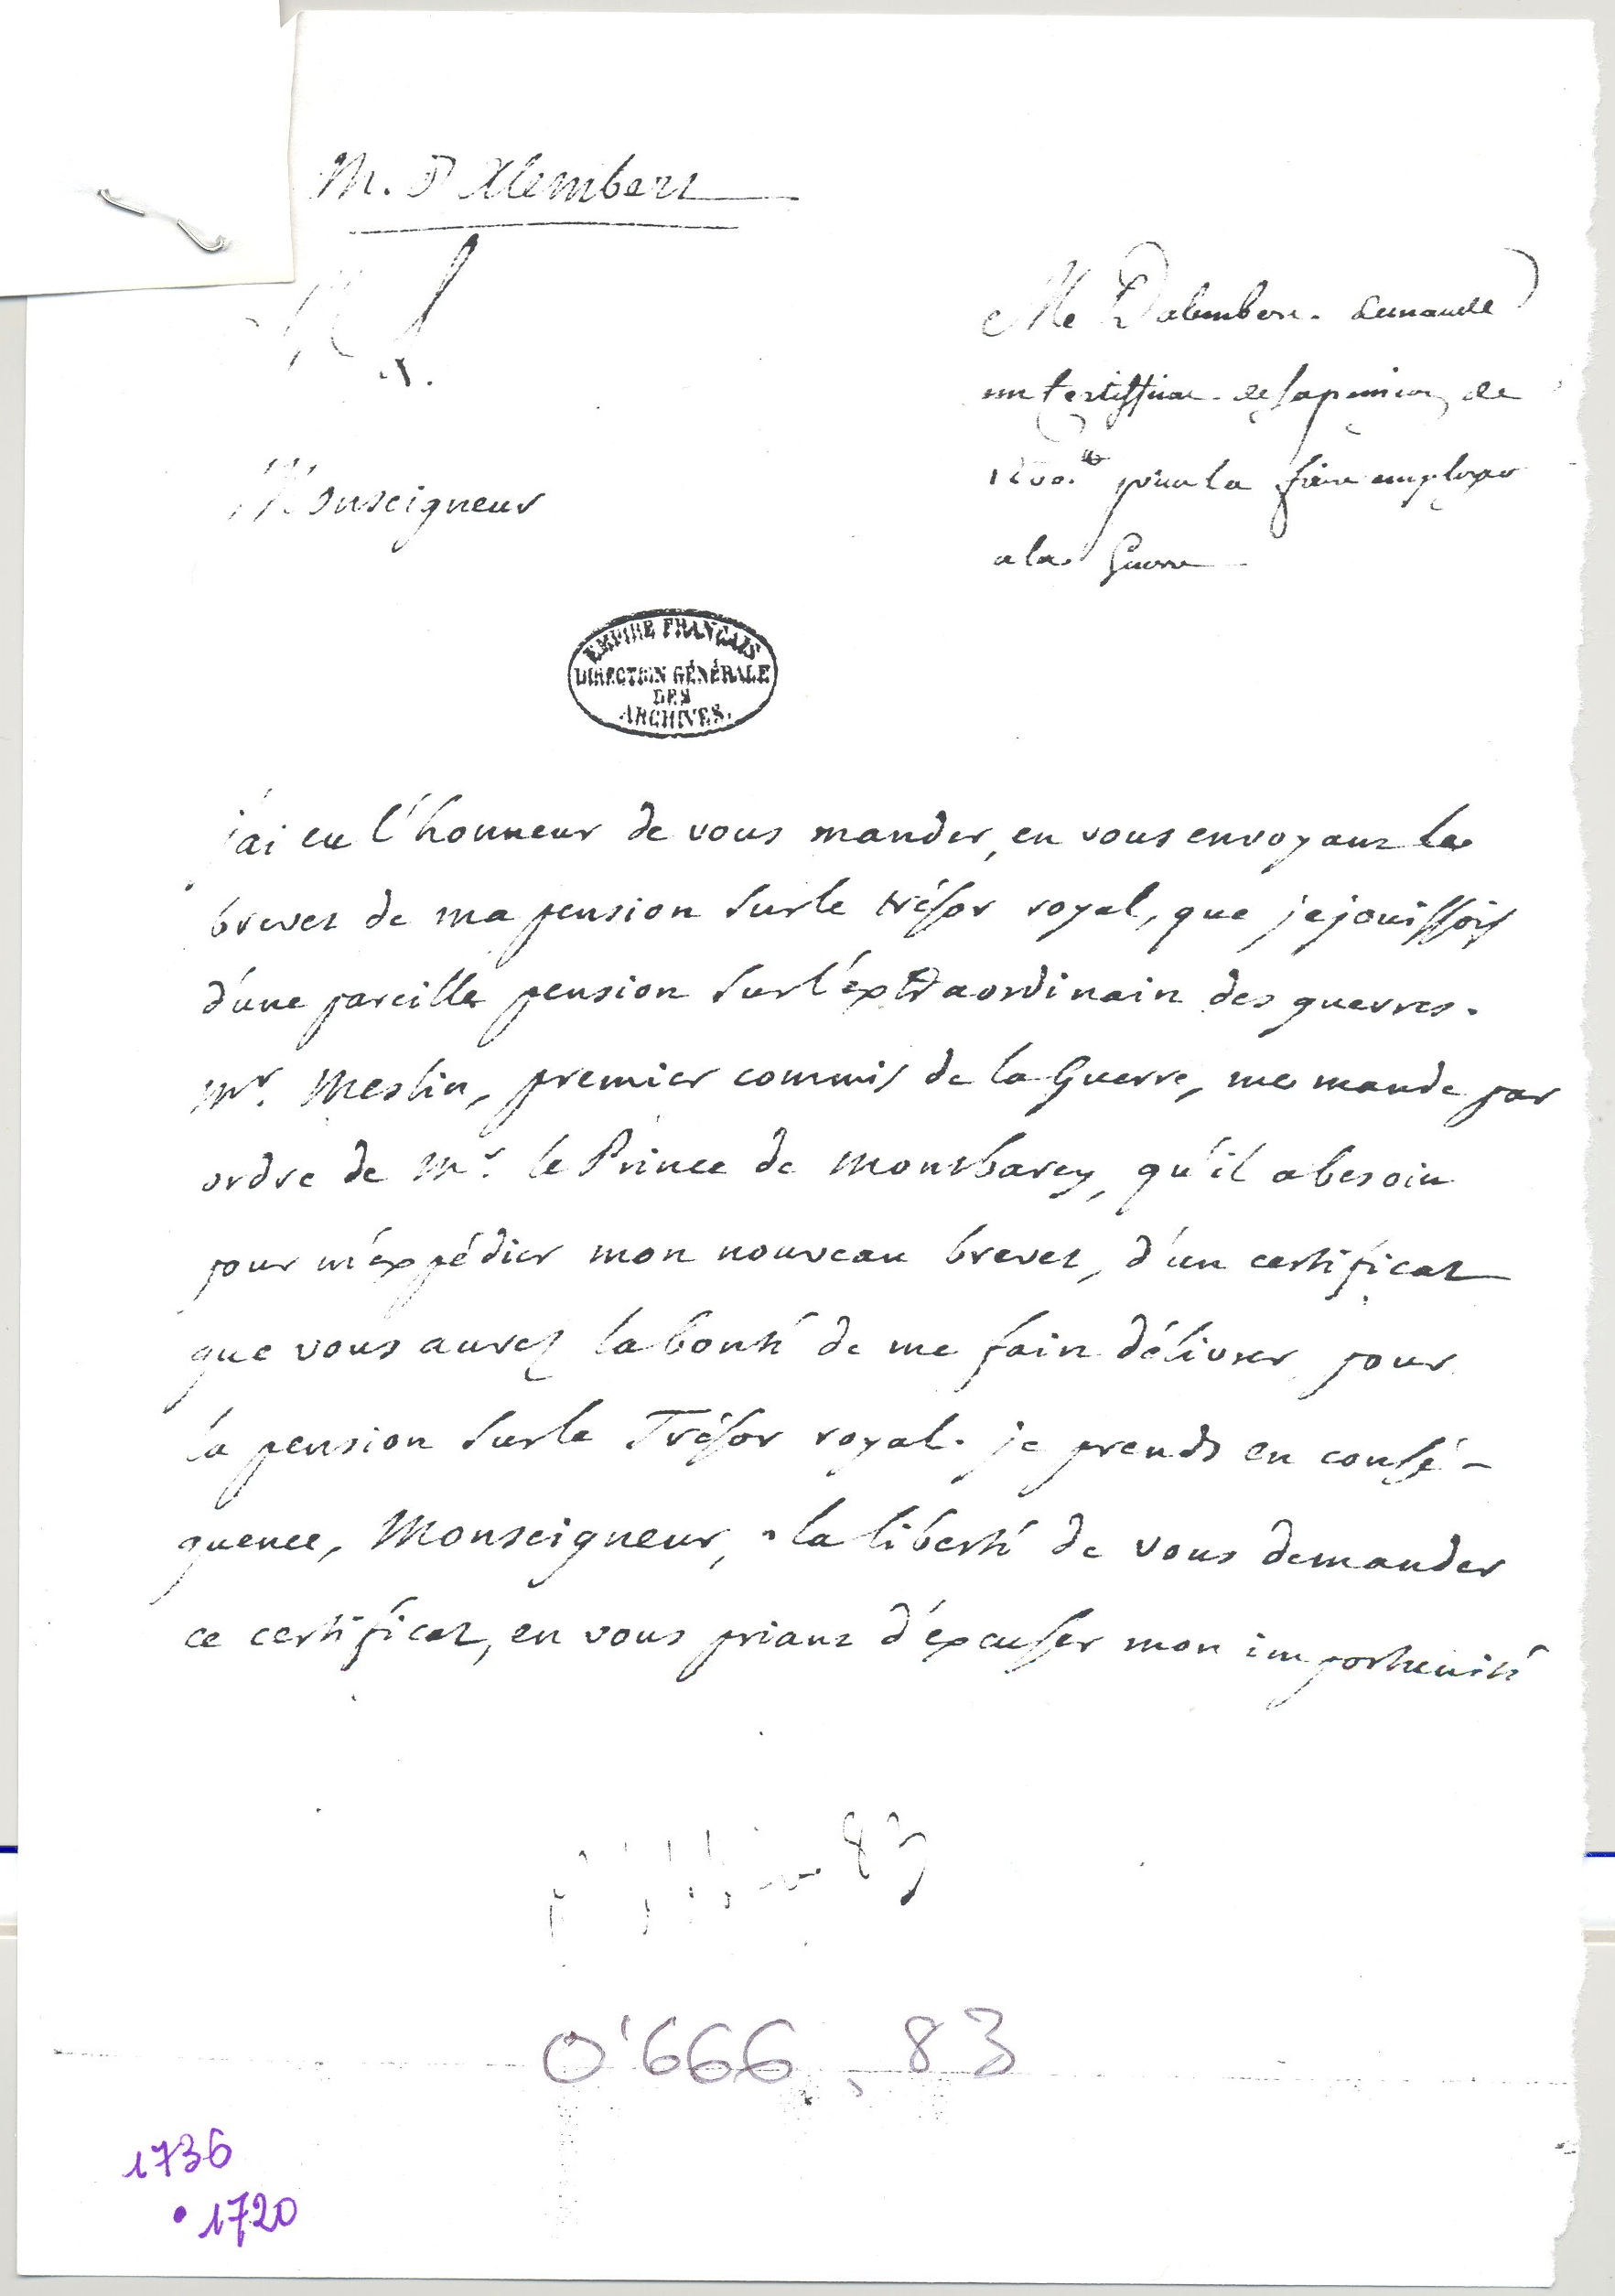 M. D'Alembert
Mr Dalembert demande
un Certifficat de sa pension de
1200.tt pour la faire employer
a la Guerre
Monseigneur
EMPIRE FRANÇAIS
DIRECTION GÉNÉRALE
DES
ARCHIVES.
j'ai eu l'honneur de vous mander, en vous envoyant le
brevet de ma pension sur le trésor royal, que je jouissois
d'une pareille pension sur l'extraordinaire des guerres.
Mr. Meslin, premier commis de la Guerre, me mande par
ordre de Mr. le Prince de Montbarey, qu'il a besoin
pour m'expédier mon nouveau brevet, d'un certificat
que vous aurez la bonté de me faire délivrer pour
la pension sur le Trésor royal. je prends en consé-
quence, Monseigneur, la liberté de vous demander
ce certificat, en vous priant d'excuser mon importunité
83
0'666, 83
1736
• 1720